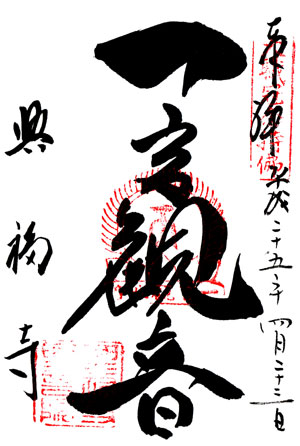 奉拝 平成二十五年四月二十三日
一言観音
興福寺